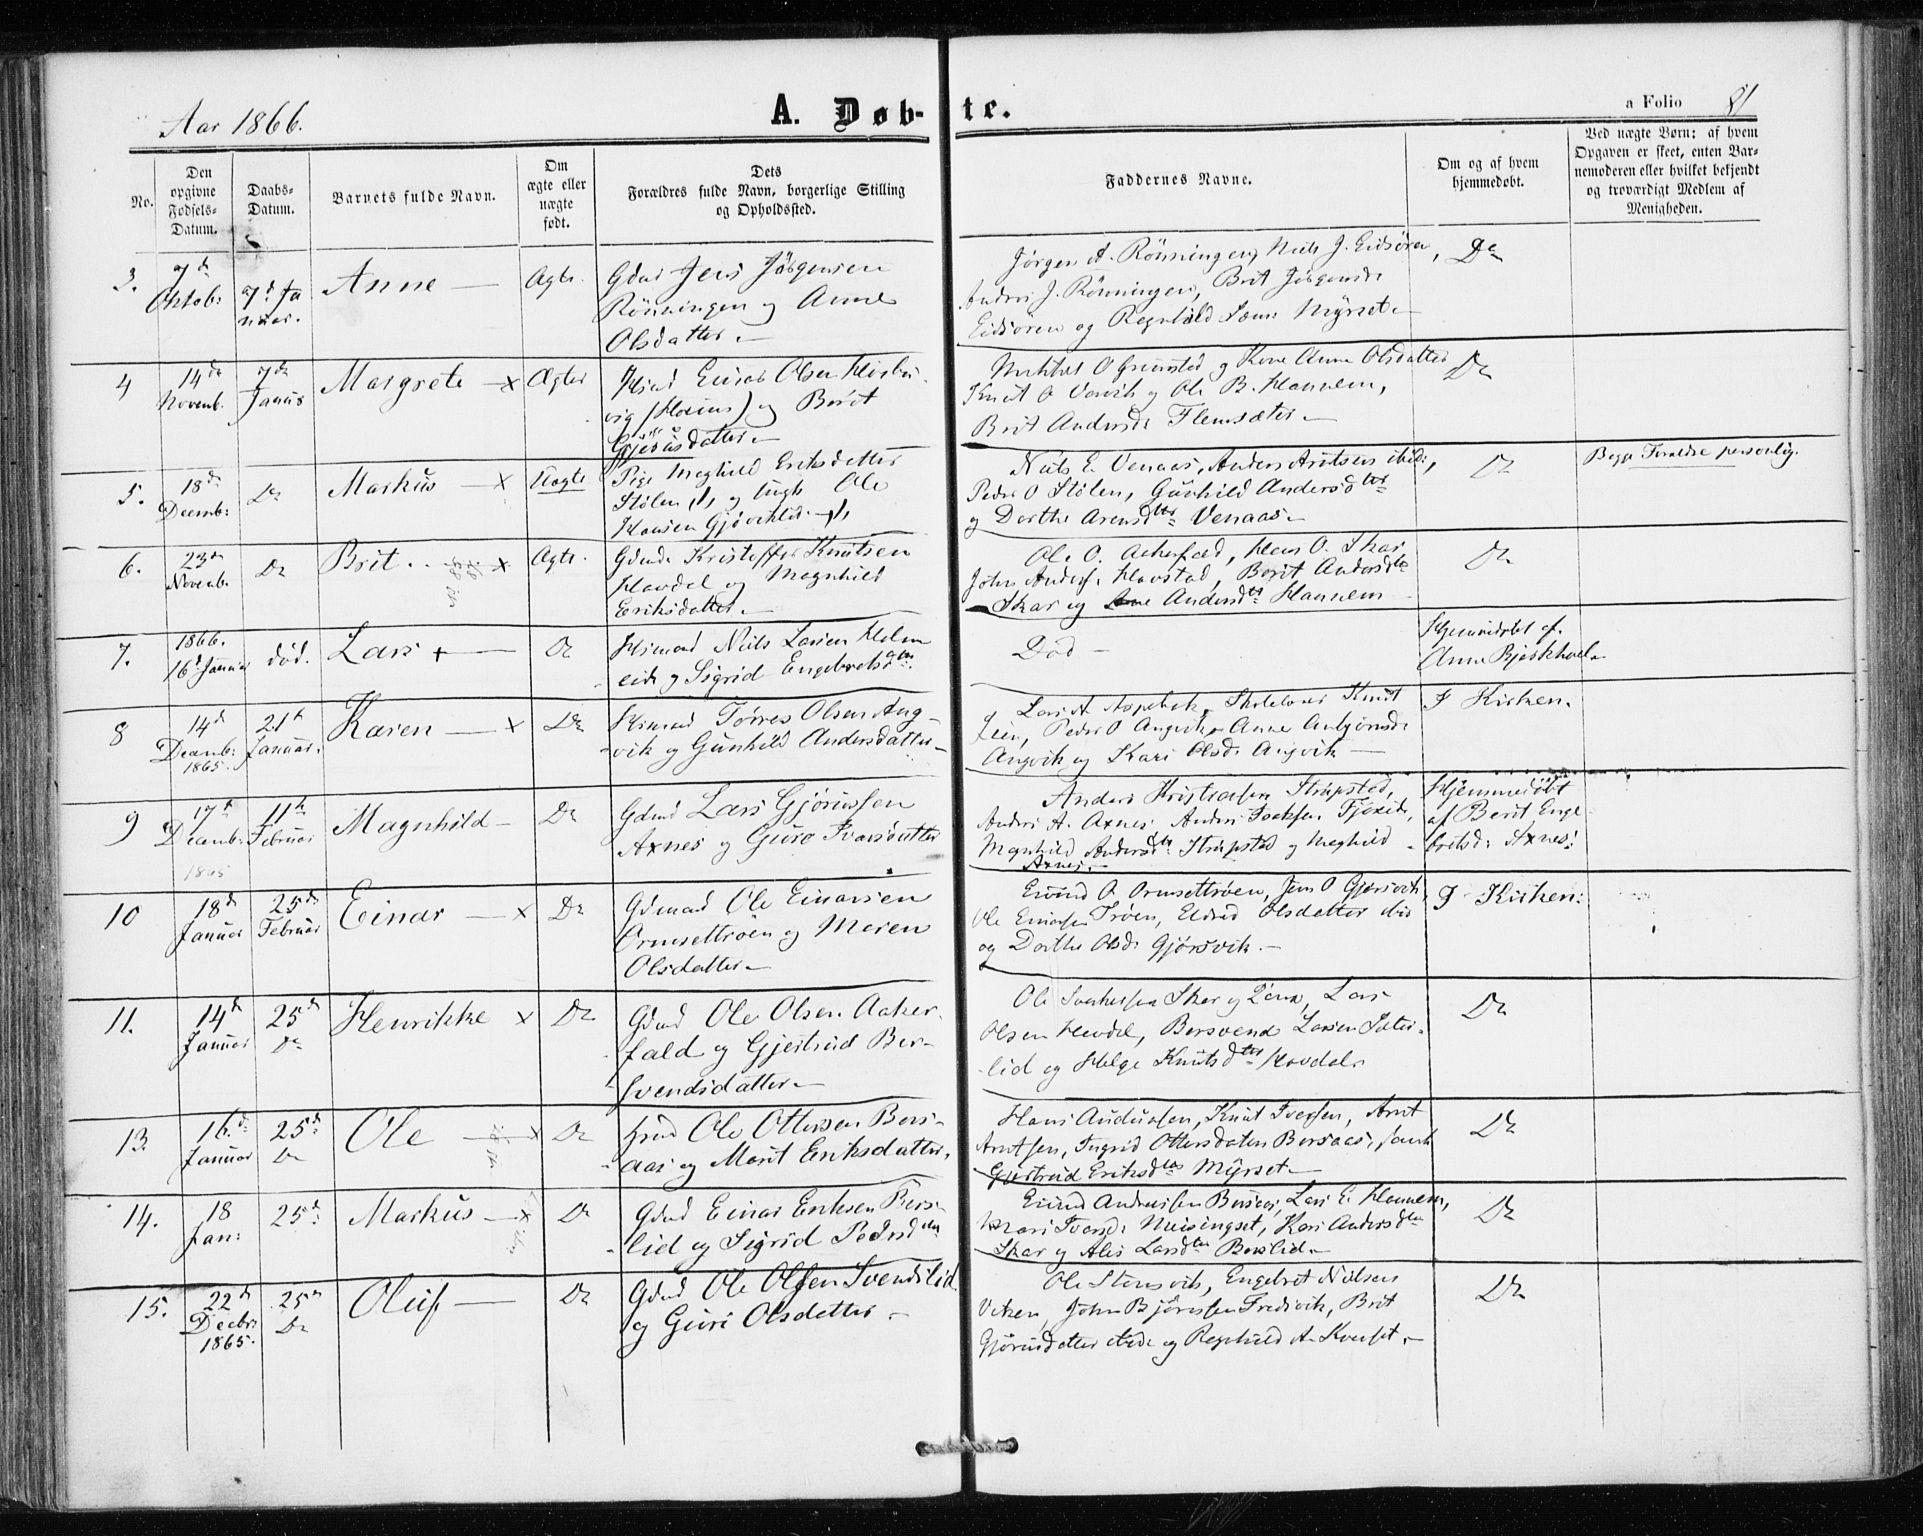 Aar 1866.
A. Døbte.
a Folio 81
No.
Den opgivne Fødsels-Datum.
Daabs-Datum.
Barnets fulde Navn.
Om ægte eller uægte født.
Dets Forældres fulde Navn, borgerlige Stilling og Opholdssted.
Faddernes Navne.
Om og af hvem hjemmedøbt.
Ved uægte Børn: af hvem Opgaven er skeet, enten Barnemoderen eller hvilket bekjendt og troværdigt Medlem af Menigheden.
3. 7d Oktob: 7d Januar. Anne — Ægte.
Gdmd Jens Jørgensen
Rönningen og Anne
Olsdatter.
Jörgen A. Rönningen, Niels J. Eidsören, Do
Anders J. Rönningen, Brit Jörgensd:
Eidsören og Regnhild Myrset
4 14de Novemb. 7de Januar Margrete — x Ægte
Einar Olsen
og Berit
Gjørusdatter
O Grimstad og Kone Anne Olsdatter Do
Knut O og Ole B. Hannem,
Brit Andersd: Flemsæter
5. 18de Decemb: Do Markus — x Uægte
Pige Maghild Eriksdatter
Stölen og Ungk Ole
Hansen
Niels E. Venaas, Anders Arntsen ibid:, Do Begge Forældre personlig.
Peder O Stölen, Gunhild Andersdtr
og Dorthe Arensdtr Venaas
6. 23de Novemb. Do Brit. x Ægte.
Gdmd: Kristoffer Knutsen
Havdal og Magnhild
Eriksdatter
Ole O. Akerfald, Hans O. Skar Do
John Anders. Havstad, Berit Andersdtr
Skar og Ane Andersdtr Hannem
7. 1866. 16d Januar död. Lars + — Do
Niels Larsen Holm
eide og Sigrid Engebretsdtr
Död — Hjemmedöbt af.
Anne Bjerkhoel
8 14d Decemb: 1865. 21d Januar. Karen — x Do
Törres Olsen Ang-
vik og Gunhild Andersdatter
Lars A Aspebak, Skolelærer Knut I Kirken.
Peder O Angvik, Anne Anbjörnsd:
Angvik og Kari Olsd: Angvik —
9 17d Decemb: 1865 11te Februar Magnhild — Do
Gdmd Lars Gjörussen
Axnes og Guro Ivarsdatter
Anders Kristiansen Strupstad, Hjemmedöbt
Anders A. Axnes, Anders Isaksen Fjöseid, af Berit Enge-
Magnhild Andersdtr Strupstad og Maghild bretsd: Axnes:
Axnes.
10 18d Januar 25de Februar Einar — x Do
Gdmand Ole Einarsen
Ormsettröen og Maren
Olsdatter
Eivind O Ormsettröen, Jens O Gjörsvik, I Kirken:
Ole Einarsen Tröen, Eldrid Olsdatter ibid
og Dorthe Olsd: Gjörsvik.
11. 14d Januar 25d Do Henrikke x Do
Gdmd Ole Olsen Aaker-
fald og Gjertrud Ber-
svendsdatter
Ole Sverkersen Skar og Kone, Lars Do
Olsen Havdal, Bersvend Larsen Sæter-
lid og Helge Knutsdtr Havdal.
13. 16d: Januar 25d: Do Ole x Do
Ole Ottersen Bers-
aas og Marit Eriksdatter,
Hans Andersen, Knut Iversen, Arnt Do
Arntsen, Ingrid Ottersdatter Bersaas, samt
Gjertrud Eriksdtr Myrset
14. 18 Jan: 25d: Markus — x Do
Gdmd Einar Eriksen Bers-
lid og Sigrid Pedersdtr
Eivind Andersen Bersaas, Lars E. Hannem, Do
Mari Iversd: Meisingset, Kari Andersdtr
Skar og Ales Larsdtr Berslid
15. 22d Decbr: 1865. 25de Do Oluf — Do
Gdmd Ole Olsen Svendslid
og Guri Olsdatter
Ole Stensvik, Engebret Nielsen Do
Viken, John Björnsen Fredsvik, Brit
Gjörusdatter ibid og Regnhild A. Kvenset.